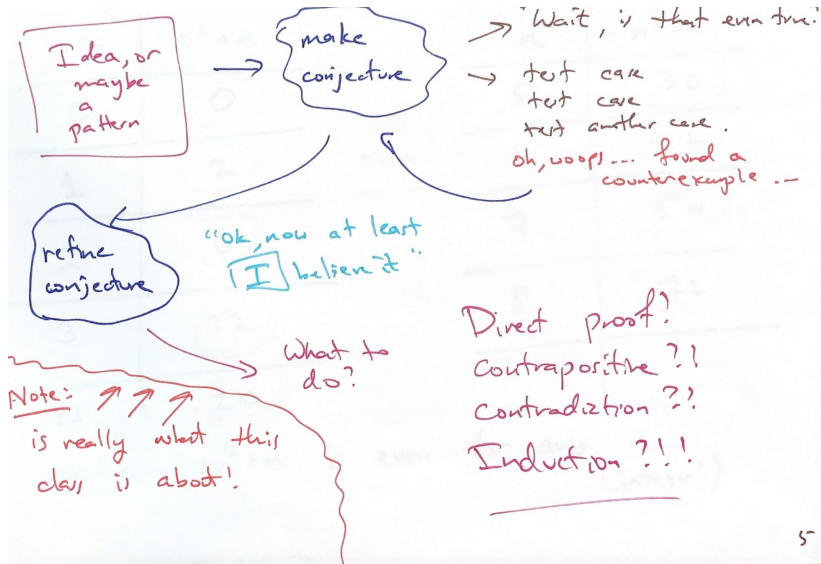 Idea, or
maybe
a
pattern
make
conjecture
"Wait, is that even true?
test case
test case
test another case.
oh, woops... found a
counterexample ...
refine
conjecture
"Ok, now at least
I believe it"
What to
do?
Direct proof?
Contrapositive ?!
Contradiction ??
Induction ?!!
Note:
is really what this
class is about!
5